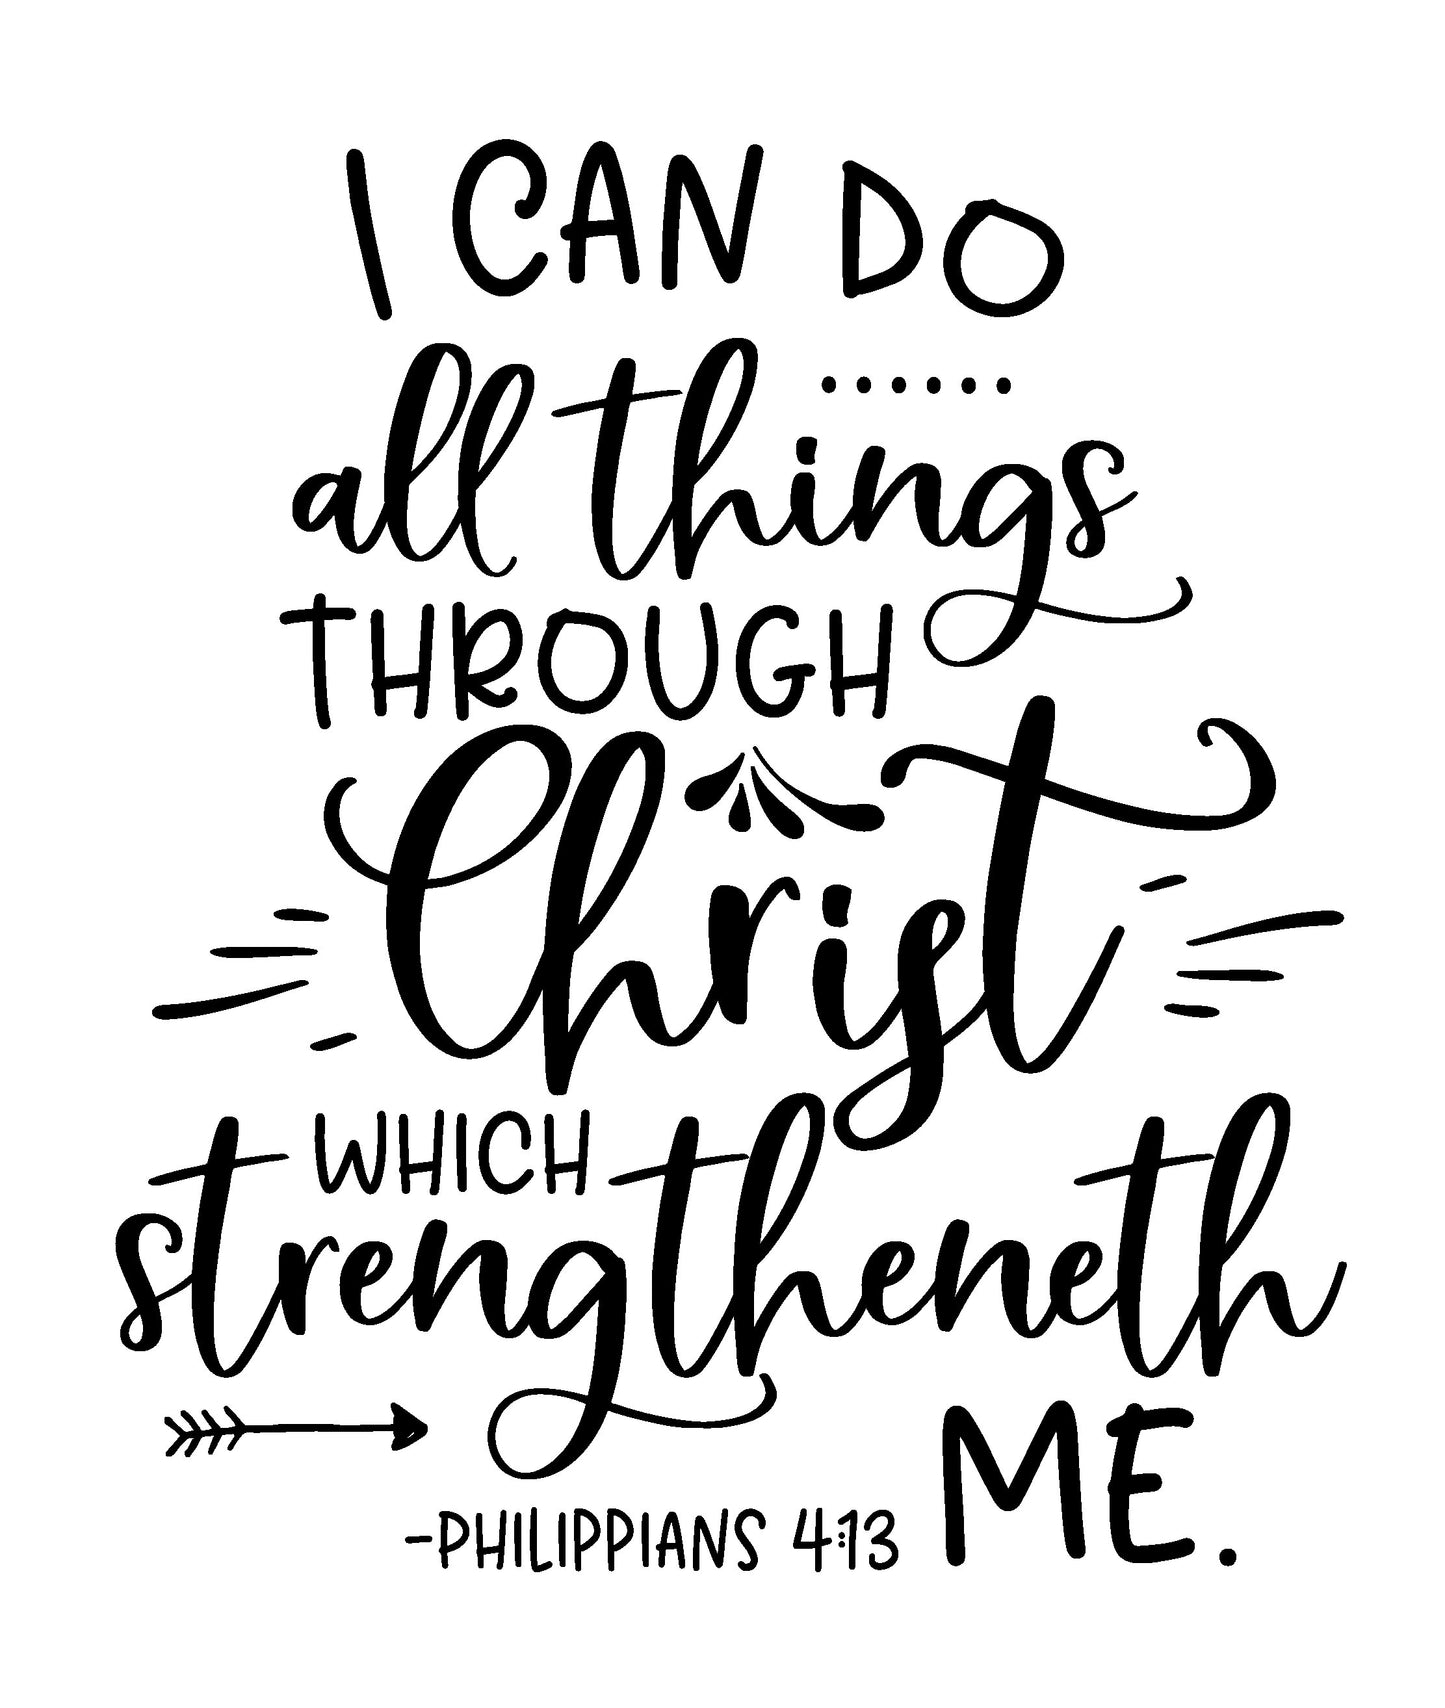 I CAN DO
all things
THROUGH
Christ
WHICH
strengtheneth
ME.
-PHILIPPIANS 4:13